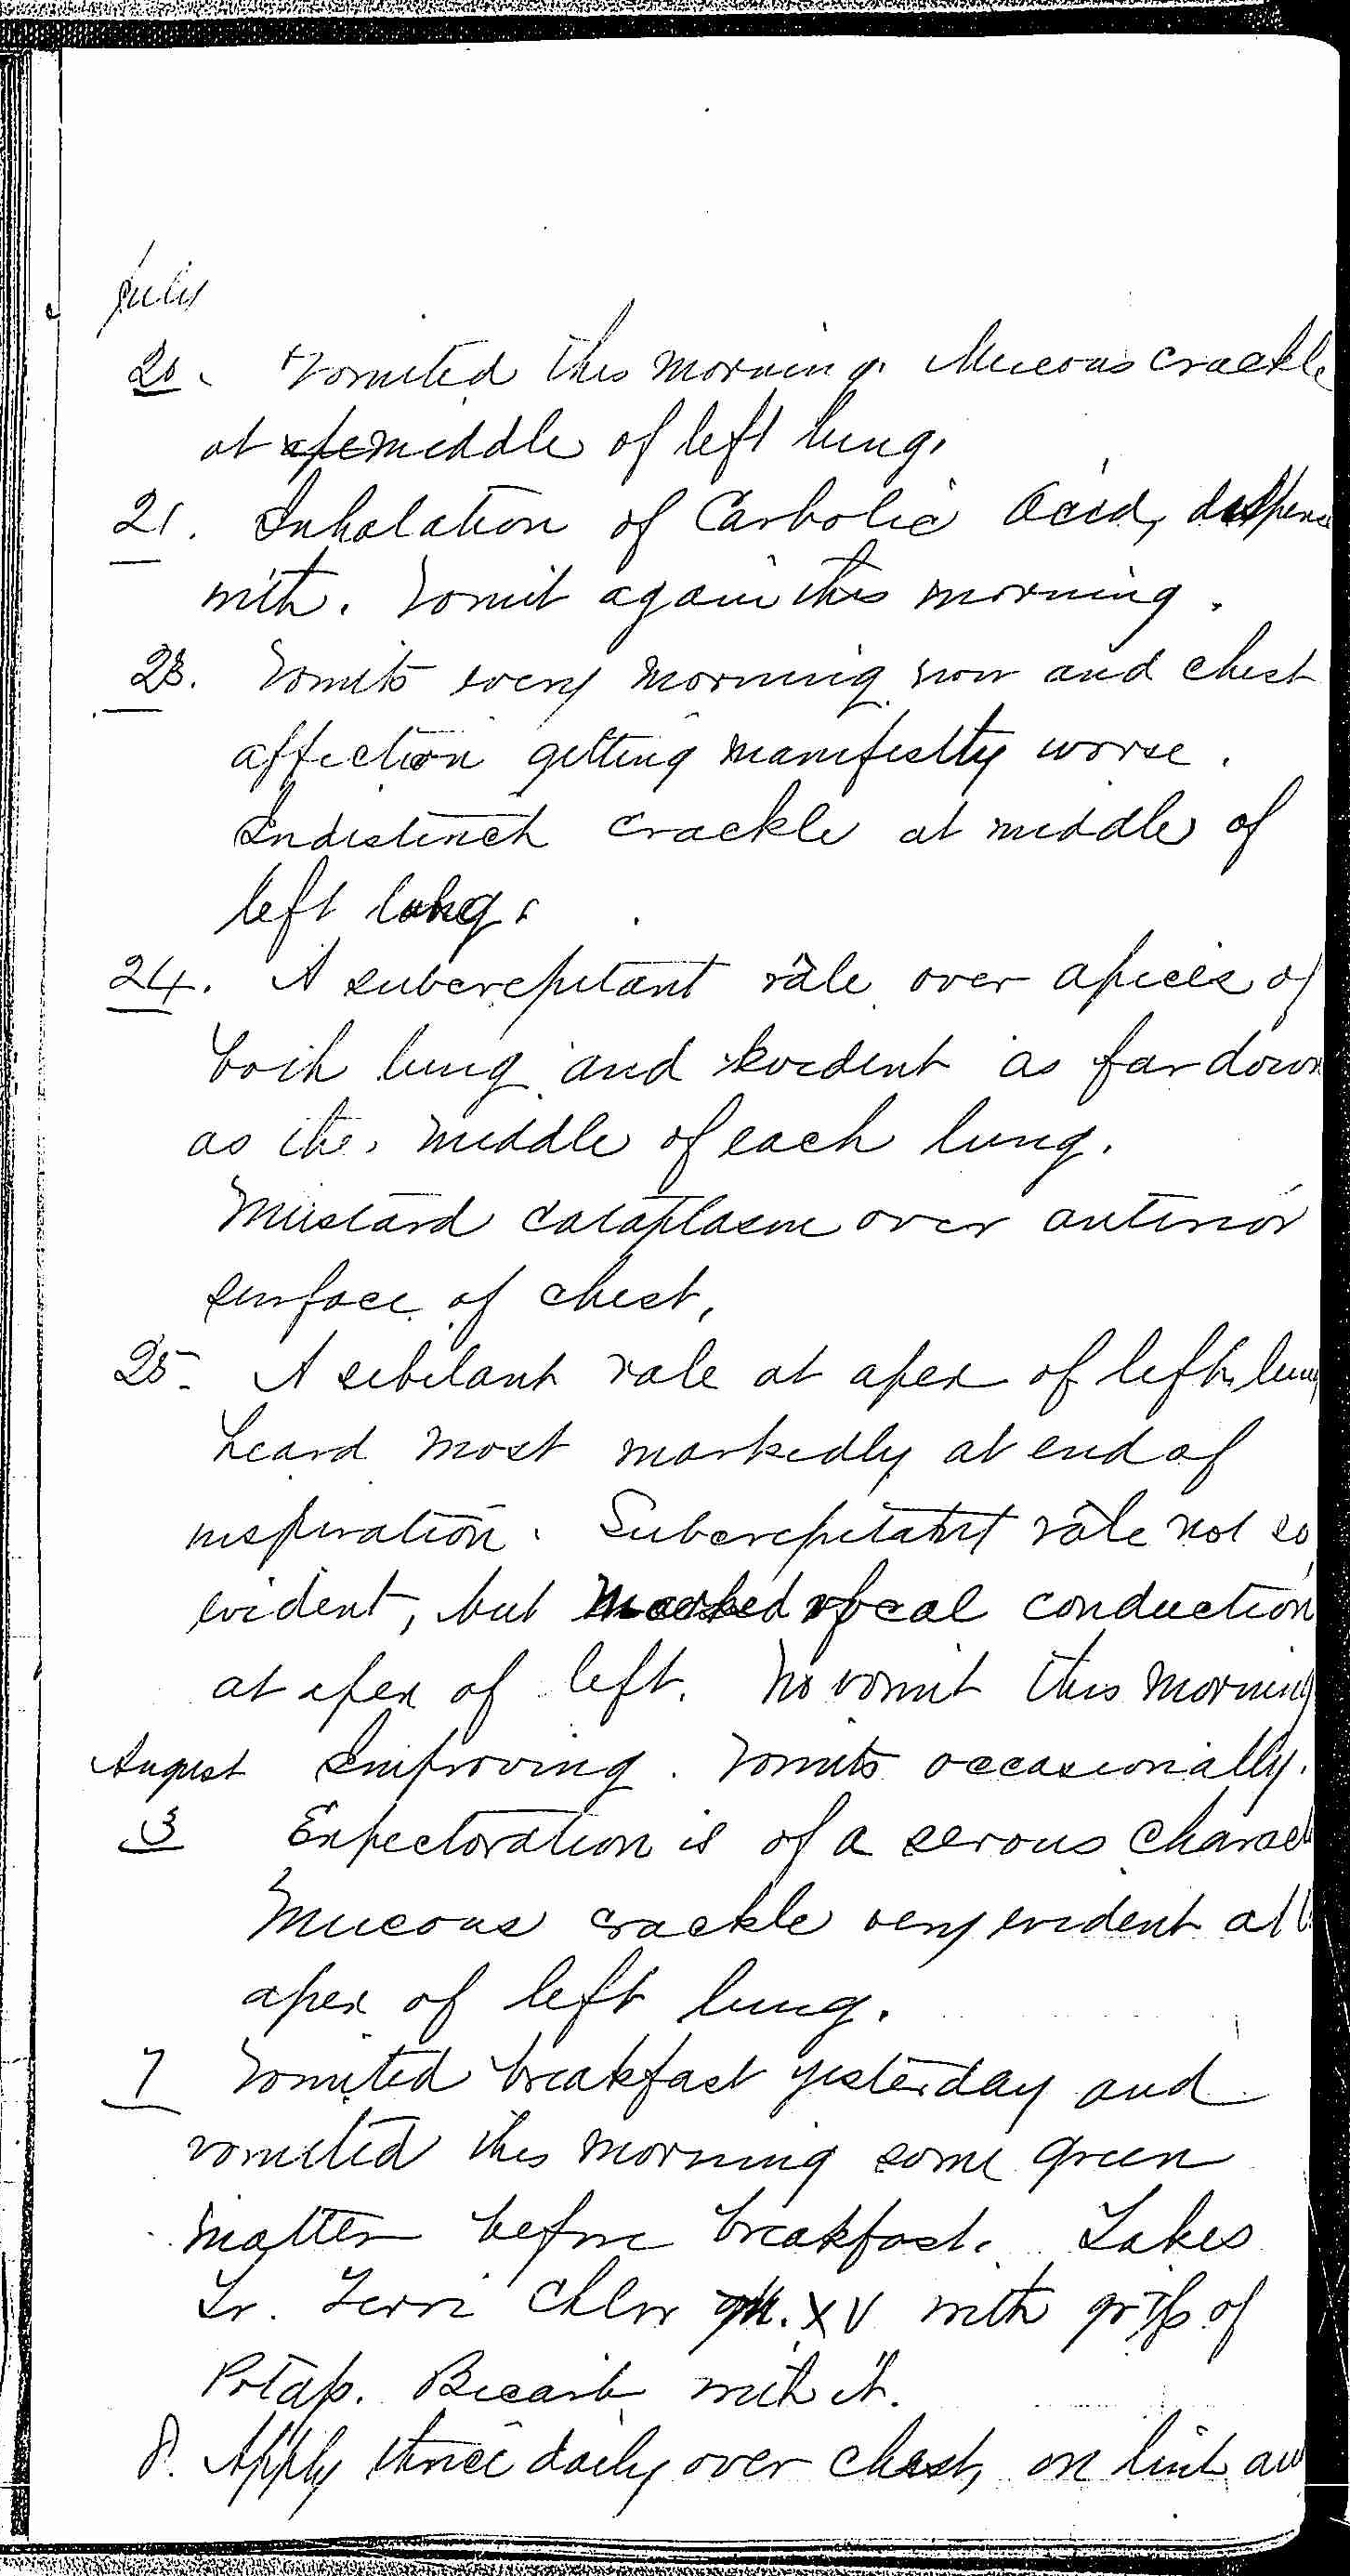 July
20. Vomited this morning. Mucous crackle
at ape middle of left lung.
21. Inhalation of Carbolic Acid, dispense
with. Vomit again this morning.
23. Vomits every morning now and chest
affection getting manifestly worse.
Indistinct crackle at middle of
left lung.
24. A subcrepitant râle over apices of
both lung and evident as far down
as the middle of each lung.
Mustard cataplasm over anterior
surface of chest.
25. A sibilant rale at apex of left lung
heard most markedly at end of
inspiration. Subcrepitant râle not so
evident, but marked vocal conduction
at apex of left. No vomit this morning
August Improving. Vomits occasionally.
3 Expectoration is of a serous charact
Mucous crackle very evident at
apex of left lung.
7 Vomited breakfast yesterday and
vomited this morning some green
matter before breakfast. Takes
Tr. Ferri Chlor XV with gr of
Potass. Bicarb with it.
8. Apply thrice daily over chest, on lint an